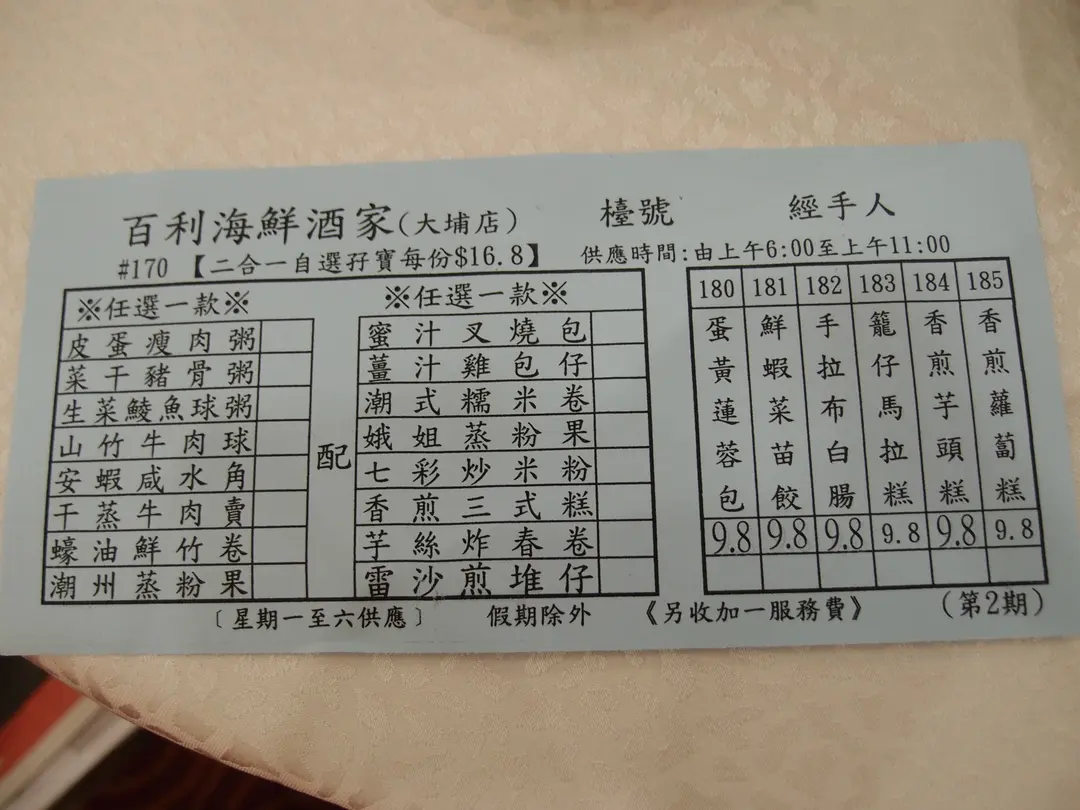 百利海鮮酒家(大埔店) 檯號 經手人
#170 【二合一自選孖寶每份$16.8】 供應時間:由上午6:00至上午11:00
※任選一款※
皮蛋瘦肉粥
菜干豬骨粥
生菜鯪魚球粥
山竹牛肉球
安蝦咸水角
干蒸牛肉賣
蠔油鮮竹卷
潮州蒸粉果
配
※任選一款※
蜜汁叉燒包
薑汁雞包仔
潮式糯米卷
娥姐蒸粉果
七彩炒米粉
香煎三式糕
芋絲炸春卷
雷沙煎堆仔
180 181 182 183 184 185
蛋黃蓮蓉包
鮮蝦菜苗餃
手拉布白腸
籠仔馬拉糕
香煎芋頭糕
香煎蘿蔔糕
9.8 9.8 9.8 9.8 9.8 9.8
〔星期一至六供應〕 假期除外 《另收加一服務費》 (第2期)